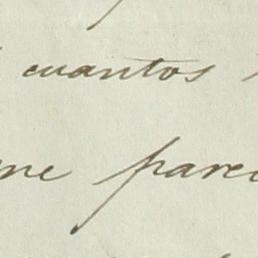 cuantos
me parec